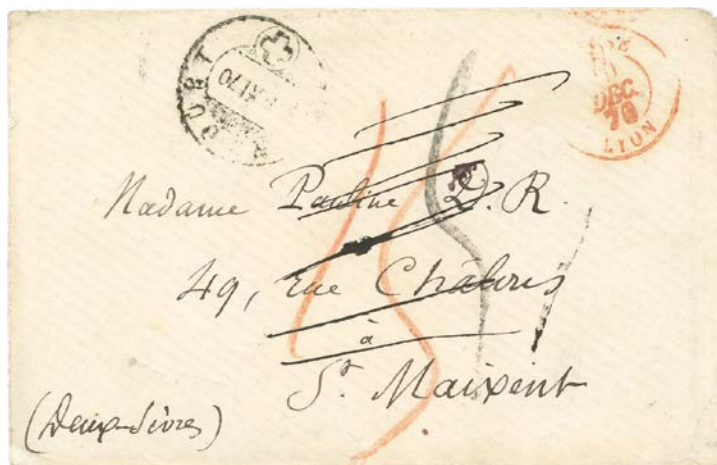 DEC.
70
LYON
XI 70
Madame Pauline D. R.
49, rue Chabris
à
St. Maixent
(Deux-Sèvres)